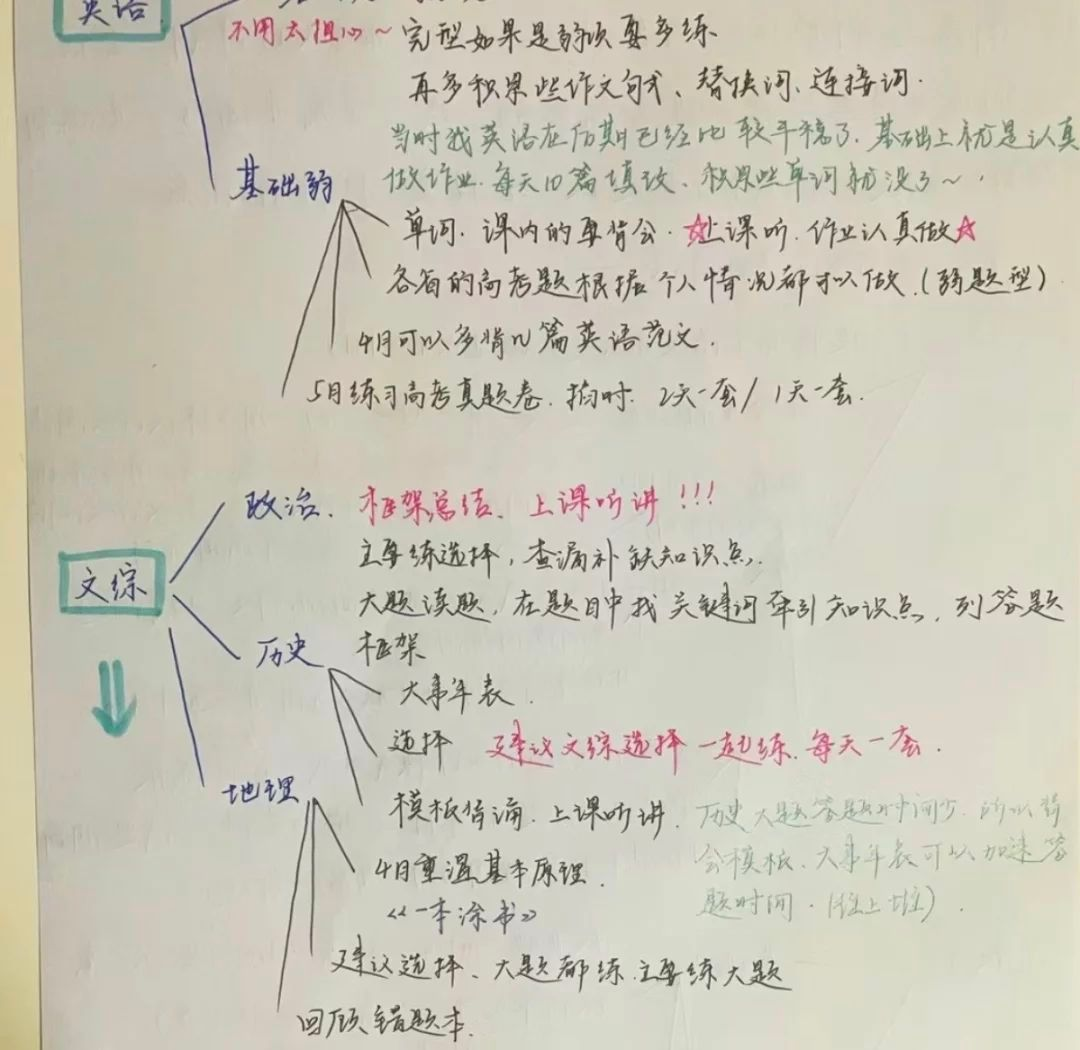 英语
不用太担心~ 完型如果是弱项要多练
再多积累些作文句式、替换词、连接词.
当时我英语在后期已经比较平稳了.基础上就是认真
做作业.每天10篇填改、积累些单词就没了~.
基础弱
单词.课内的要背会.☆上课听.作业认真做☆
各省的高考题根据个人情况都可以做.(弱题型)
4月可以多背几篇英语范文.
5月练习高考真题卷.掐时. 2天一套/1天一套.
文综
政治. 框架总结、上课听讲!!!
主要练选择,查漏补缺知识点.
大题读题,在题目中找关键词牵引知识点,列答题
框架
历史
大事年表.
选择 建议文综选择一起练.每天一套.
模板背诵.上课听讲.
历史大题答题时间少.所以背
会模板、大事年表可以加速答
题时间.(往上堆).
地理
4月重温基本原理.
《一本涂书》
建议选择、大题都练.主要练大题
回顾错题本.